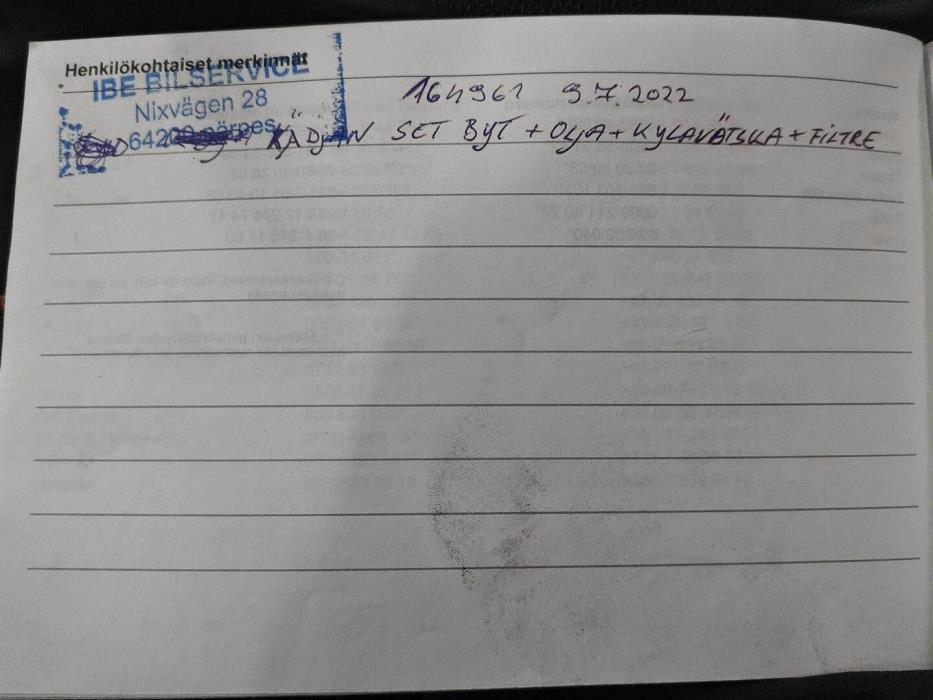 Henkilökohtaiset merkinnät
IBE BILSERVICE
Nixvägen 28
164961 9 7 2022
KÄDJAN SET BYT + OLJA + KYLAVÄTSKA + FILTRE